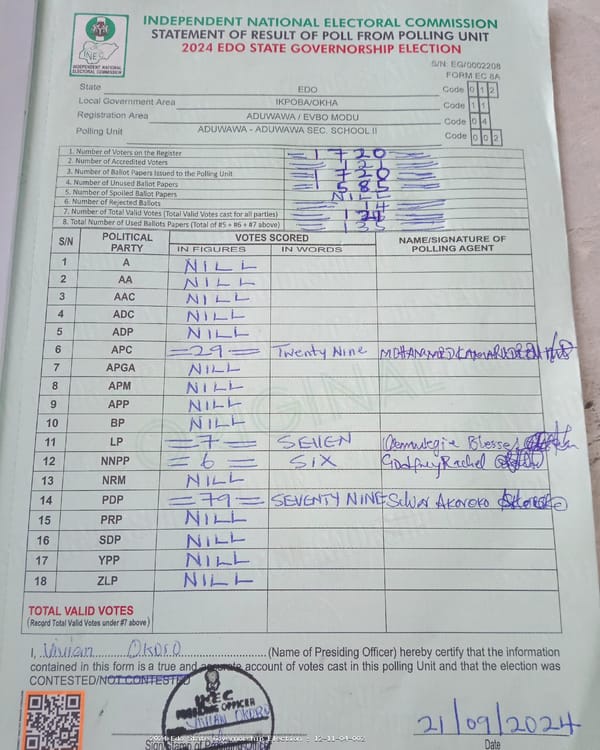 INDEPENDENT NATIONAL ELECTORAL COMMISSION
STATEMENT OF RESULT OF POLL FROM POLLING UNIT
2024 EDO STATE GOVERNORSHIP ELECTION
INEC
INDEPENDENT NATIONAL
ELECTORAL COMMISSION
S/N: EG/0002208
FORM EC 8A
State EDO Code 0 1 2
Local Government Area IKPOBA/OKHA Code 1 1
Registration Area ADUWAWA / EVBO MODU Code 0 4
Polling Unit ADUWAWA - ADUWAWA SEC. SCHOOL II Code 0 0 2
1. Number of Voters on the Register =1720=
2. Number of Accredited Voters 121
3. Number of Ballot Papers Issued to the Polling Unit 1720
4. Number of Unused Ballot Papers 1585
5. Number of Spoiled Ballot Papers NILL
6. Number of Rejected Ballots 14
7. Number of Total Valid Votes (Total Valid Votes cast for all parties)
8. Total Number of Used Ballots Papers (Total of #5 + #6 + #7 above) 135
S/N POLITICAL PARTY VOTES SCORED NAME/SIGNATURE OF POLLING AGENT
IN FIGURES IN WORDS
1 A NILL
2 AA NILL
3 AAC NILL
4 ADC NILL
5 ADP NILL
6 APC =29= Twenty Nine
7 APGA NILL
8 APM NILL
9 APP NILL
10 BP NILL
11 LP =7= SEVEN
12 NNPP =6= SIX Godfrey Rachel
13 NRM NILL
14 PDP =79= SEVENTY NINE Silver Akoroko
15 PRP NILL
16 SDP NILL
17 YPP NILL
18 ZLP NILL
TOTAL VALID VOTES
(Record Total Valid Votes under #7 above)
ORIGINAL
I, Vivian Okoro (Name of Presiding Officer) hereby certify that the information
contained in this form is a true and accurate account of votes cast in this polling Unit and that the election was
CONTESTED/NOT CONTESTED
INEC
PRESIDING OFFICER
VIVIAN OKORO
21/09/2024
2024 Edo State Governorship Election - 12-11-04-002
Date